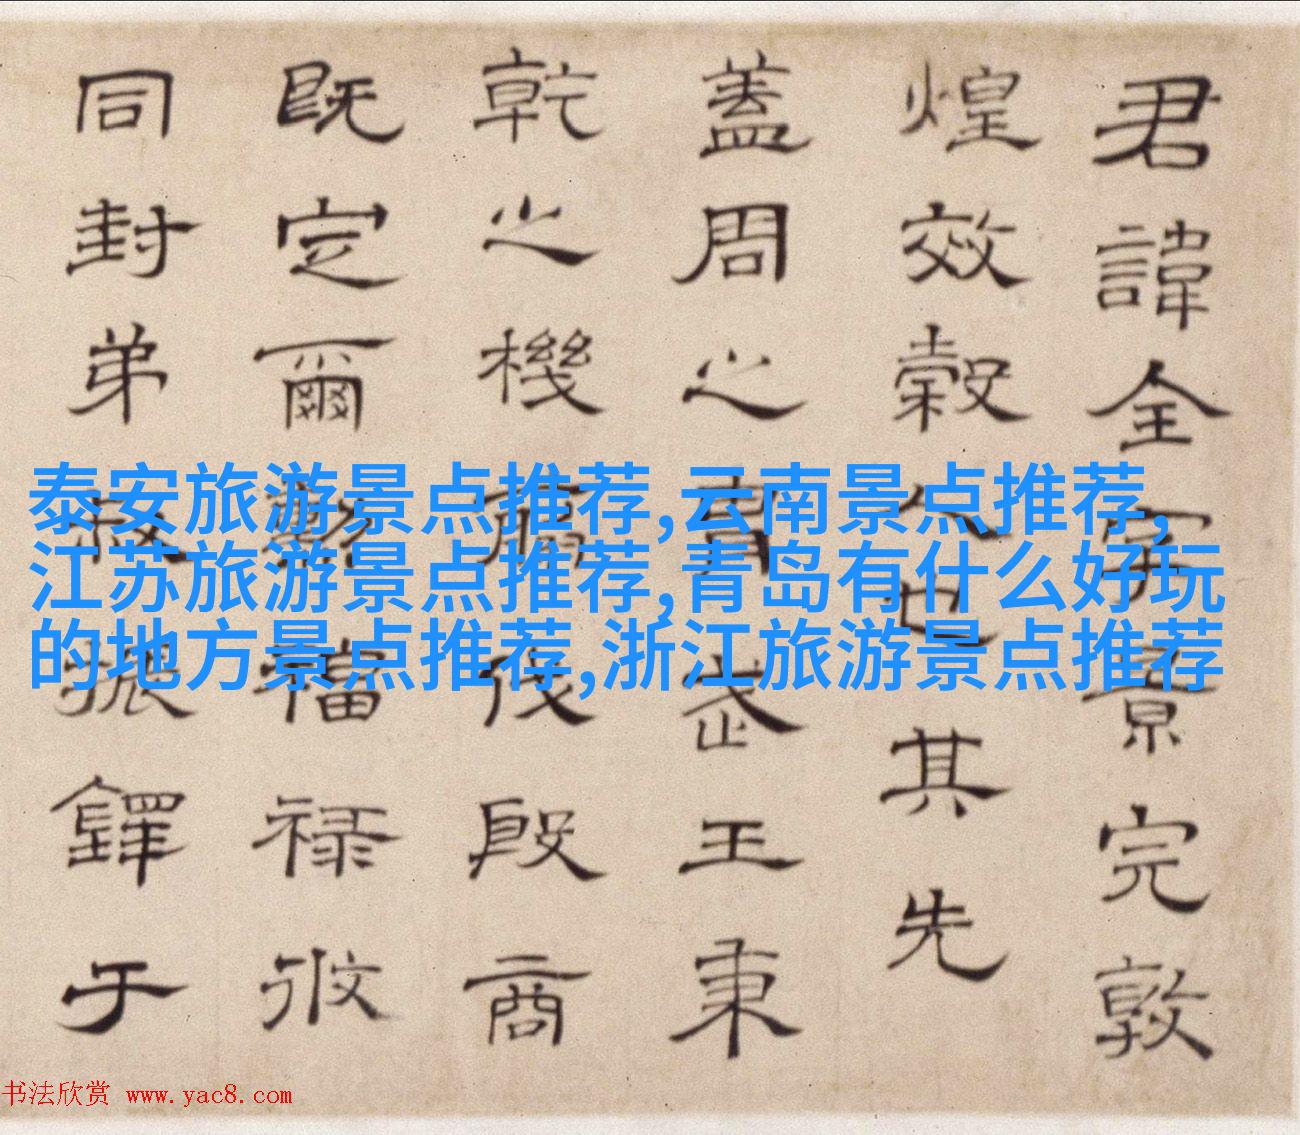 君諱全字景完敦
煌效穀人也其先
蓋周之胄武王秉
乾之機翦伐殷商
既定爾勳福祿攸
同封弟叔振鐸于
泰安旅游景点推荐,云南景点推荐,
江苏旅游景点推荐,青岛有什么好玩
的地方景点推荐,浙江旅游景点推荐
书法欣赏 www.yac8.com